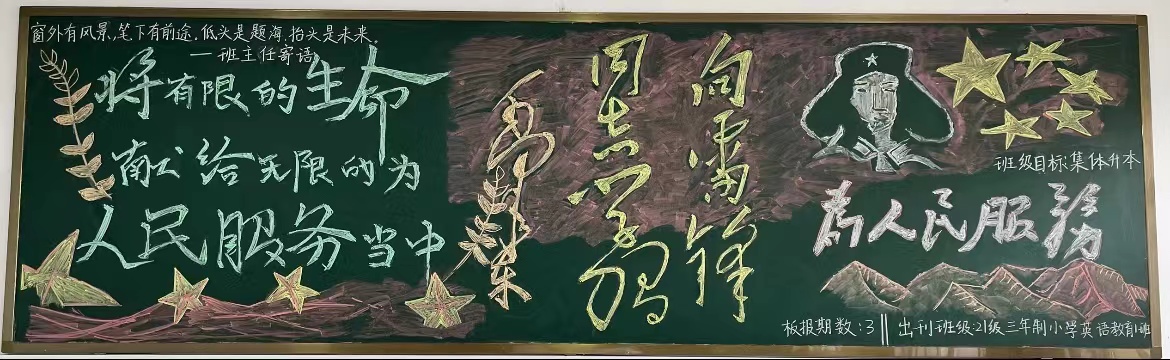 窗外有风景,笔下有前途,低头是题海,抬头是未来。
——班主任寄语
将有限的生命
献给无限的为
人民服务当中
向雷锋
同志学习
毛泽东
班级目标:集体升本
为人民服务
板报期数:3 || 出刊班级:21级三年制小学英语教育1班